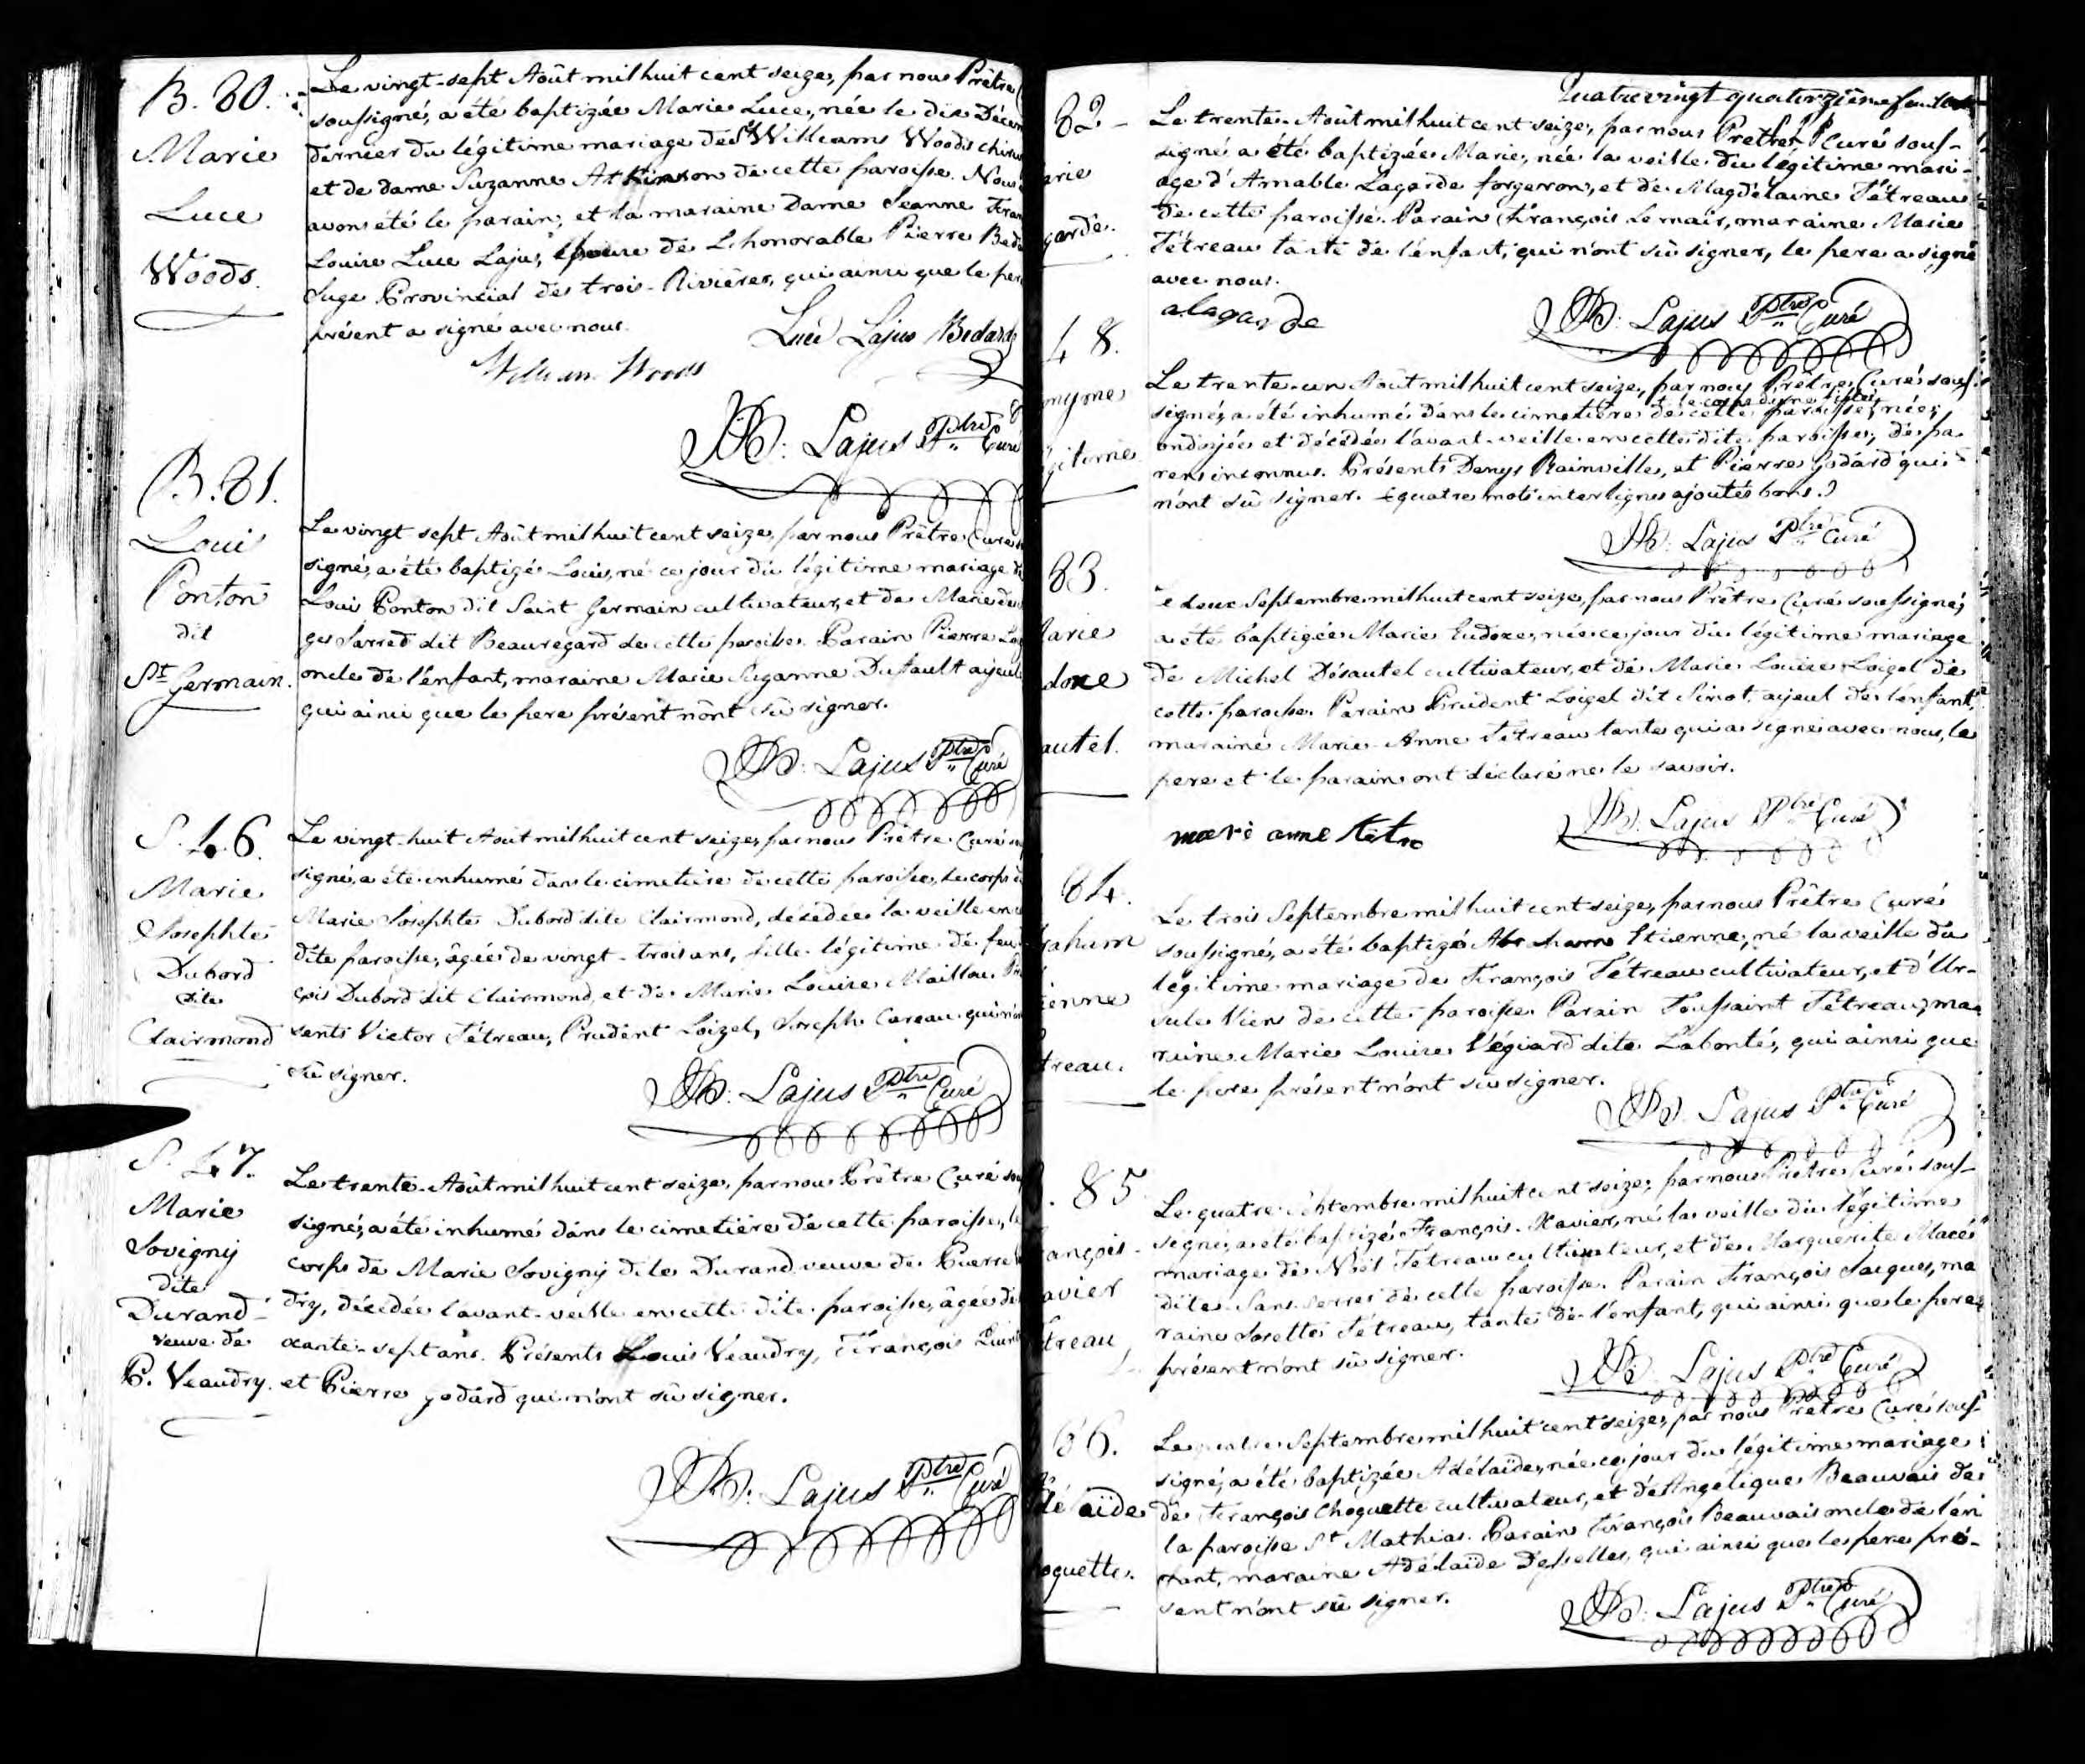 B. 80.
Marie
Luce
Woods.
Le vingt-sept Août mil huit cent seize, par nous Prêtre
soussigné, a été baptizée Marie Luce, née le dix Décem
dernier du légitime mariage de Sr Williams Woods chirur
et de dame Suzanne Atkinson de cette paroisse. Nous
avons été le parain, et la maraine Dame Jeanne Fran
Louise Luce Lajus, épouse de L'honorable Pierre Beda
Juge Provincial des trois-Rivières, qui ainsi que le per
présent a signé avec nous.
Luce Lajus Bedard
William Woods
Lajus Ptre Curé
B. 81.
Loui
Ponton
dit
St Germain.
Le vingt sept Août mil huit cent seize, par nous Prêtre Curé
signé, a été baptizé Louis, né ce jour du légitime mariage de
Loui Ponton dit Saint Germain cultivateur, et de Marie
ges Sarred dit Beauregard de cette paroisse. Parain Pierre
oncle de l'enfant, maraine Marie Suzanne Dufault ajeule
qui ainsi que le pere présent n'ont sû signer.
Lajus Ptre Curé
S. 46.
Marie
Josephte
Dubord
dite
Clairmond
Le vingt-huit Aout mil huit cent seize, par nous Prêtre Curé sous
signé, a été inhumé dans le cimetière de cette paroisse, le corps de
Marie Josephte Dubord dite Clairmond, décédée la veille en
dite paroisse, âgée de vingt-trois ans, fille légitime de feu
çois Dubord dit Clairmond, et de Marie Louise Maillou. Pré
sents Victor Tétreau, Prudent Loizel, Joseph Careau qui n'ont
sû signer.
Lajus Ptre Curé
S. 47.
Marie
Sovigny
dite
Durand
veuve de
P. Veaudry.
Le trente Août mil huit cent seize, par nous Prêtre Curé sou
signé, a été inhumé dans le cimetière de cette paroisse, le
corps de Marie Sovigny dite Durand veuve de Pierre
dry, décédée l'avant-veille en cette dite paroisse, âgée de
xante-sept ans. Présents Louis Veaudry, François
et Pierre godard qui n'ont sû signer.
Lajus Ptre Curé
Quatrevingt quatorzième
82
arie
garde.
Le trente Août mil huit cent seize, par nous Prêtre Curé sous-
signé a été baptizée Marie, née la veille du légitime mari-
age d'Amable Lagarde forgeron, et de Magdelaine Tétreau
de cette paroisse. Parain François Lemair, maraine Marie
Tétreau tante de l'enfant, qui n'ont sû signer, le pere a signé
avec nous.
alagarde
Lajus Ptre Curé
48.
nyme
gitime
Le trente-un Août mil huit cent seize, par nous Prêtre Curé sous
le corps d'une fille
signé, a été inhumé dans le cimetière de cette paroisse, née,
ondoyée et décédée l'avant-veille en cette dite paroisse, de pa-
rens inconnus. Présents Denys Rainville, et Pierre Godard qui
n'ont sû signer. quatre mots interlignes ajoutés bons.
Lajus Ptre Curé
83.
arie
doxe
autel.
e deux Septembre mil huit cent seize, par nous Prêtre Curé soussigné,
a été baptizée Marie Eudoxe, née ce jour du légitime mariage
de Michel Désautel cultivateur, et de Marie Louise Loizel de
cette paroisse. Parain Prudent Loizel dit Sinot, ajeul de l'enfant,
maraine Marie-Anne Tétreau tante qui a signé avec nous, le
pere et le parain ont déclaré ne le savoir.
Lajus Ptre Curé
84.
raham
ienne
treau.
Le trois Septembre mil huit cent seize, par nous Prêtre Curé
soussigné, a été baptizé Abraham Etienne, né la veille du
légitime mariage de François Tétreau cultivateur, et d'Ur-
sule Vien de cette paroisse. Parain Toussaint Tétreau, ma
raine Marie Louise Végiard dite Labonté, qui ainsi que
le pere présent n'ont sû signer.
Lajus Ptre Curé
. 85
ançois-
avier
treau
Le quatre Septembre mil huit cent seize, par nous Prêtre Curé sous-
signé, a été baptizé François-Xavier, né la veille du légitime
mariage de Noël Tétreau cultivateur, et de Marguerite Macé
dite Sans-Serres de cette paroisse. Parain François Jacques, ma
raine Josette Tétreau, tante de l'enfant, qui ainsi que le pere
présent n'ont sû signer.
Lajus Ptre Curé
86.
délaïde
oquette.
Le quatre Septembre mil huit cent seize, par nous Prêtre Curé sous-
signé, a été baptizée Adélaïde, née ce jour du légitime mariage
de François Choquette cultivateur, et de Angélique Beauvais de
la paroisse St Mathias. Parain François Beauvais oncle de l'en
fant, maraine Adélaïde Desselles, qui ainsi que le pere pré-
sent n'ont sû signer.
Lajus Ptre Curé